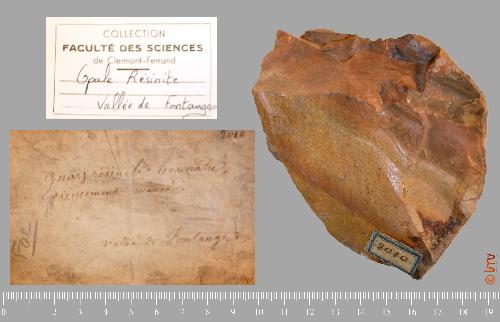 COLLECTION
FACULTÉ DES SCIENCES
de Clermont-Ferrand
Opale Résinite
Vallée de Fontanges
2010
vallée de Fontanges
2010
© bmv
0 1 2 3 4 5 6 7 8 9 10 11 12 13 14 15 16 17 18 19